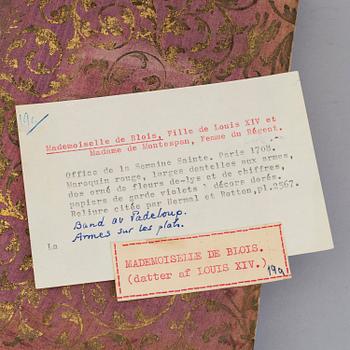 191
Mademoiselle de Blois, Fille de Louis XIV et
Madame de Montespan, Femme du Régent.
Office de la Semaine Sainte. Paris 1708.
Maroquin rouge, larges dentelles aux armes,
dos orné de fleurs de-lys et de chiffres,
papiers de garde violets à décors dorés.
Reliure citée par Hermal et Rotton, pl.2567.
Band av Padeloup.
Armes sur les plats.
La
MADEMOISELLE DE BLOIS.
(datter af LOUIS XIV.)
191